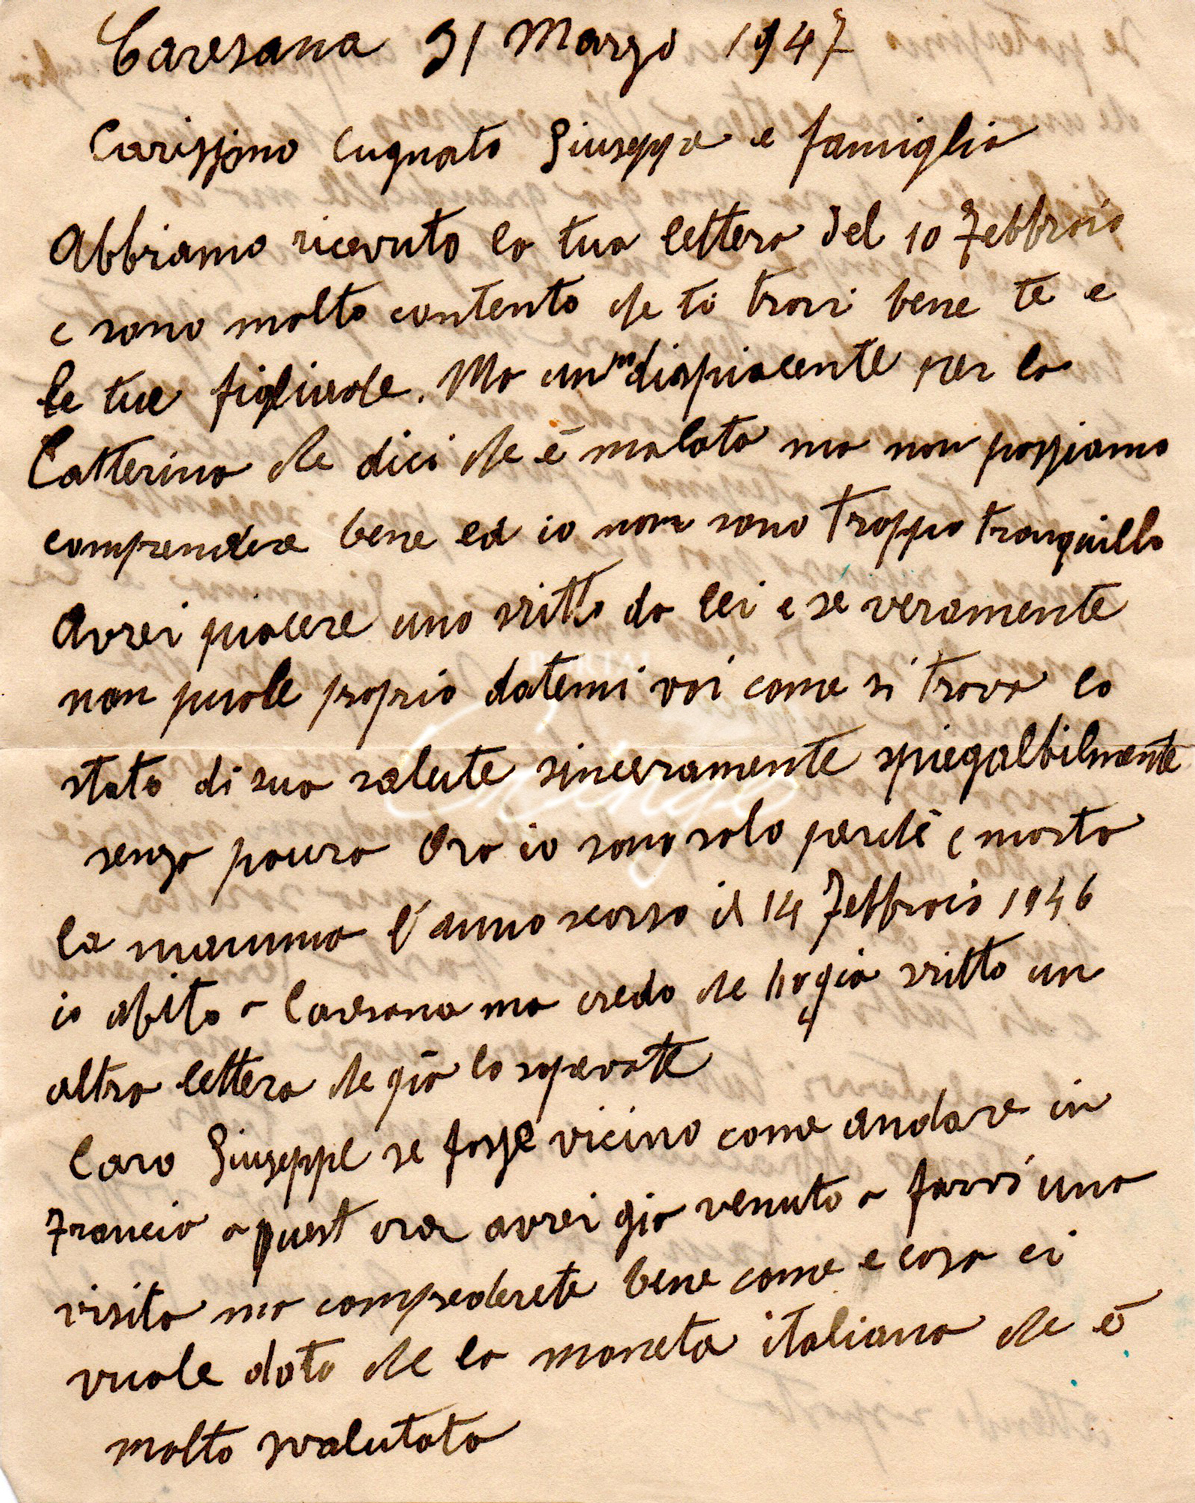 Caresana 31 Marzo 1947
Carissimo Cugnato Giuseppe e famiglia
Abbiamo ricevuto la tua lettera del 10 Febbraio
e sono molto contento che ti trovi bene te e
le tue figliuole. Ma un dispiacente per la
Catterina che dici che è malata ma non possiamo
comprendere bene ed io non sono troppo tranquillo
Avrei piacere uno scritto da lei e se veramente
non puole proprio datemi voi come si trova lo
stato di sua salute sinceramente spiegalbilmente
senza paura Ora io sono solo perchè e morta
la mamma l'anno scorso il 14 Febbraio 1946
io abito a Caresana ma credo che già scritto un
altra lettera che già lo sapevate
Caro Giuseppe se fosse vicino come andare in
Francia a quest ora avrei già venuto a farvi una
visita ma comprederete bene come e cosa ci
vuole dato che la moneta italiana che è
molto svalutata